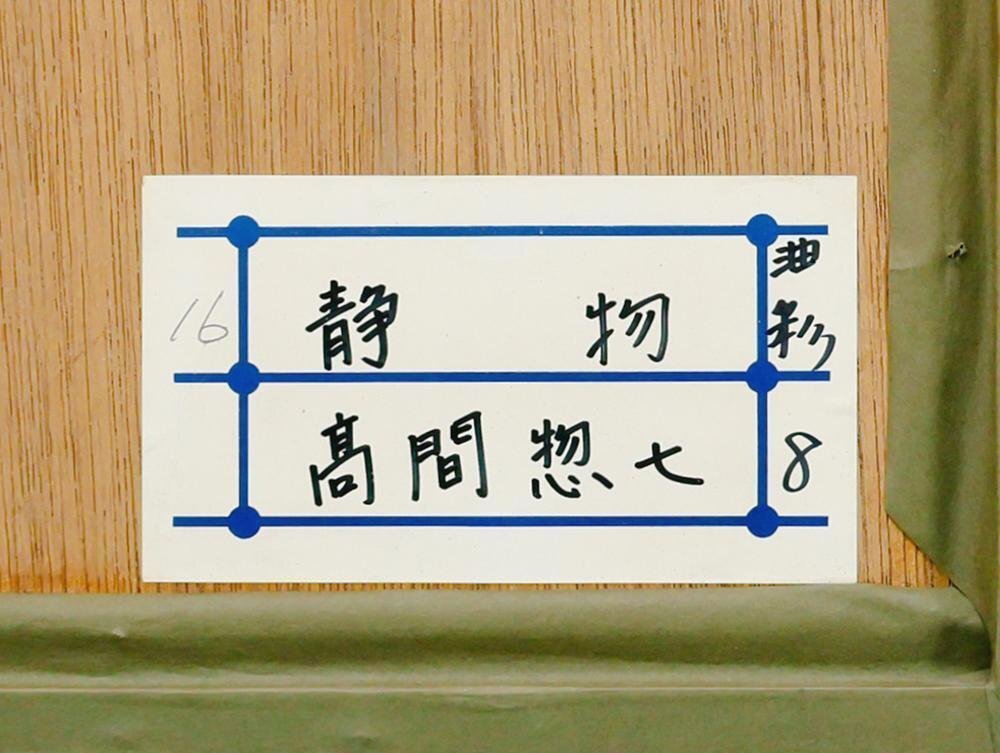 16 静物 油彩
髙間惣七 8